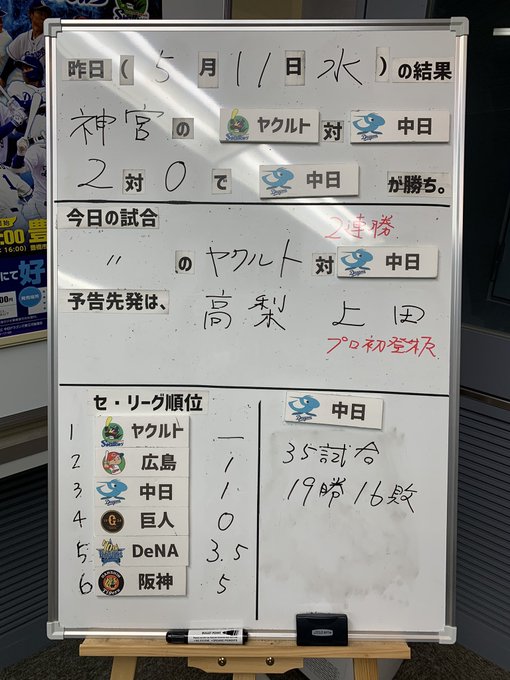 昨日(5月11日水)の結果
神宮のヤクルト対中日
2対0で中日が勝ち。
今日の試合 2連勝
〃のヤクルト対中日
予告先発は、高梨 上田
プロ初登板
セ・リーグ順位
1 ヤクルト ―
2 広島 1
3 中日 1
4 巨人 0
5 DeNA 3.5
6 阪神 5
中日
35試合
19勝16敗